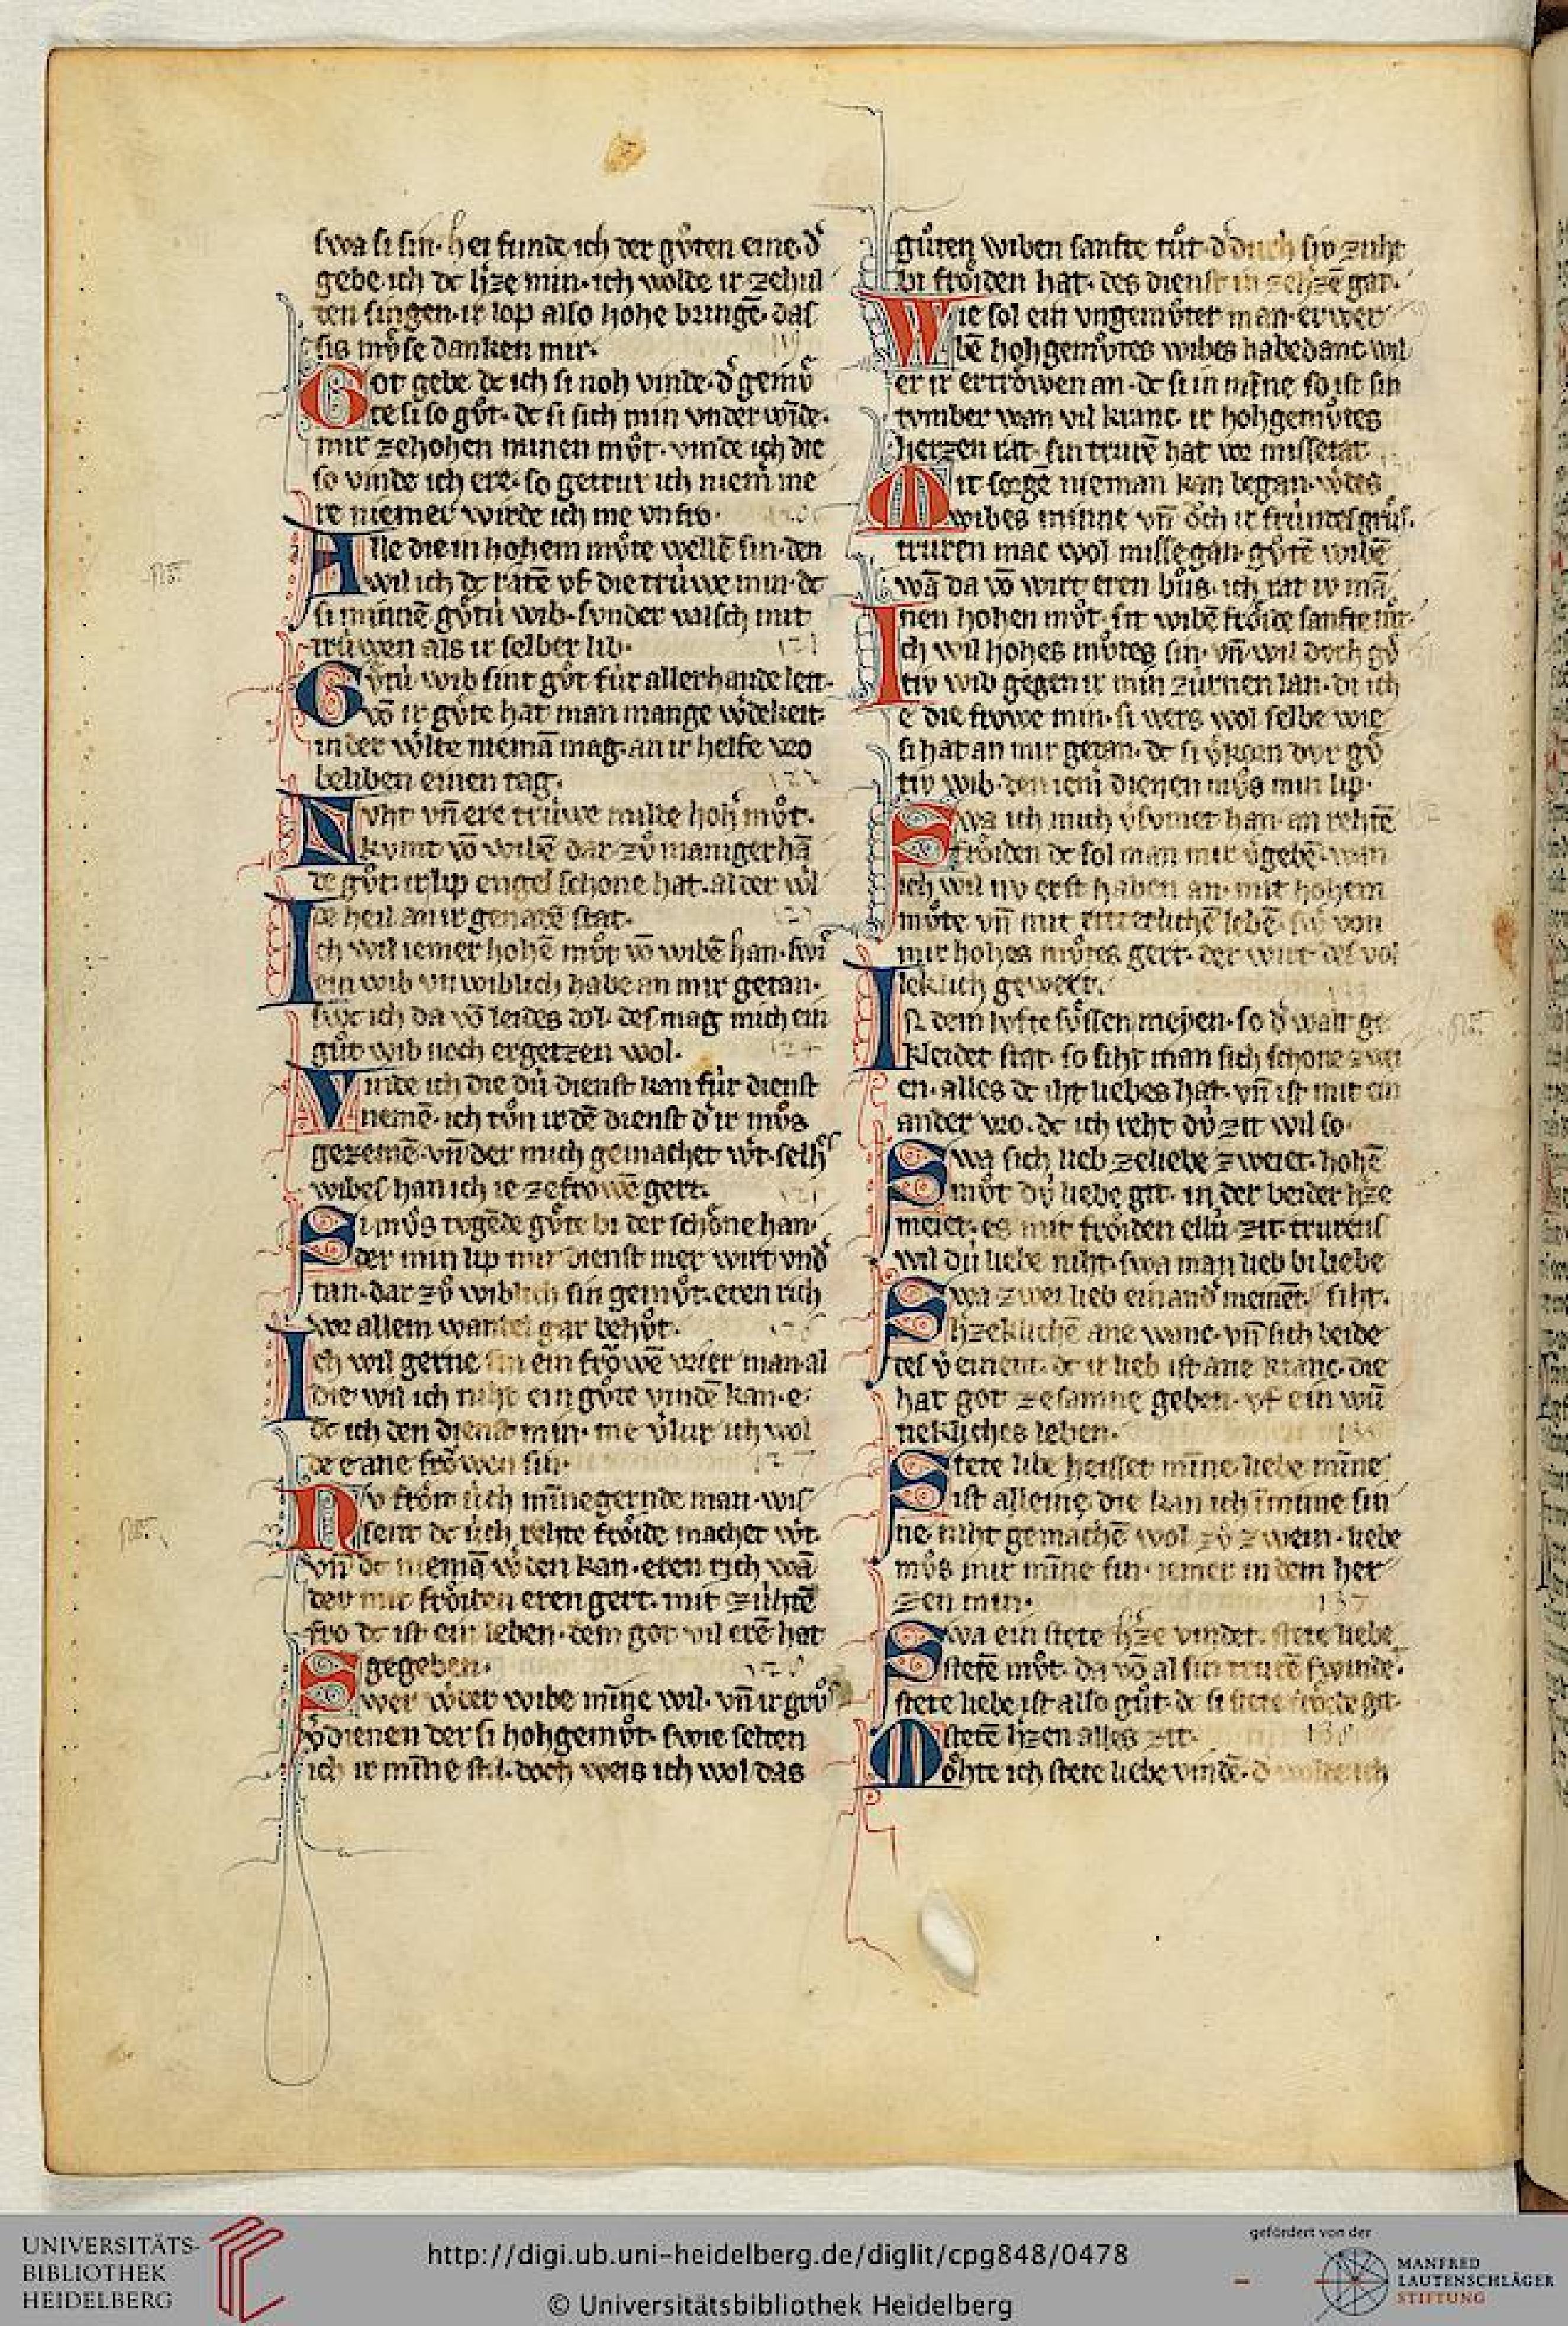 swa si sin. hei funde ich der gůten eine. d͛
gebe ich dc h͛ze min. ich wolde ir zehul
ten singen. ir lop also hohe bringē. das
sis mv̊se danken mir.
Got gebe dc ich si noh vinde. d͛ gemv̊
te si so gůt. dc si sich min vnder winde.
mir zehohen minen můt. vinde ich die
so vinde ich ere. so getrur ich niem͛ me
re niemer wirde ich me vnfro.
Alle die in hohem můte wellē sin. den
wil ich dc ratē vf die trúwe min. dc
si minnē gůtú wib. sunder valsch mit
trúwen als ir selber lib.
Gůtú wib sint gůt fúr allerhande leit.
vō ir gůte hat man mange w͛dekeit.
in der w͛lte niemā mag. an ir helfe vro
beliben einen tag.
Zvht vn̄ ere trúwe milte hoh͛ můt.
kvmt vō wibē dar zů maniger hā
de gůt. ir lip engel schone hat. al der w͛l
de heil an ir genadē stat.
Ich wil iemer hohē můt vō wibē han. swc
ein wib vnwiblich habe an mir getan.
swc ich da vō leides dol. des mag mich ein
gůt wib noch ergetzen wol.
Vinde ich die dú dienst kan fúr dienst
nemē. ich tůn ir dē dienst d͛ ir můs
gezemē. vn̄ der mich gemachet w͛t. selh͛
wibes han ich ie zefrowē gert.
Si můs tvgēde gůte bi der schone han.
der min lip mit dienst mer wirt vnd͛
tan. dar zů wiblich sin gemůt. eren rich
vor allem wandel gar behůt.
Ich wil gerne sin ein frówē vrier man. al
die wil ich niht ein gůte vindē kan. e
dc ich den dienst min. me v͛lur ich wol
de e ane frówen sin.
Nv fróit úch minnegernde man. wis
sent dc úch rehte fróide machet w͛t.
vn̄ dc niemā w͛den kan. eren rich wā
der mit fróiden eren gert. mit zúhtē
fro dc ist ein leben. dem got wil erē hat
gegeben.
Swer w͛der wibe mīne wil. vn̄ ir grůs
v͛dienen der si hohgemůt. swie selten
ich ir mīne stil. doch weis ich wol das
gůten wiben sanfte tůt. d͛ durch siv zuht
bi fróiden hat. des dienst in zeh͛zē gat.
Wie sol ein vngemůter man. erwer
bē hohgemůtes wibes habedanc. wil
er ir ertrówen an. dc si in mīne so ist sin
tvmber wan vil kranc. ir hohgemůtes
herzen rat. sin trurē hat vor missetat.
Mit sorgē nieman kan began. w͛des
wibes minne vn̄ óch ir frúntes grůs.
truren mac wol missegan. gůtē wibē
wā da vō wirt eren bůs. ich rat iv mā
nen hohen můt. sit wibē fróide sanfte tůt.
Ich wil hohes můtes sin. vn̄ wil doch gů
tiv wib gegen ir min zúrnen lan. bi ich
e die frowe min. si weis wol selbe wie
si hat an mir getan. dc si v͛korn dvr gů
tiv wib. den iem͛ dienen můs min lip.
Swa ich mich v͛svmet han. an rehtē
fróiden dc sol man mir v͛gebē. wan
ich wil nv erst haben an. mit hohem
můte vn̄ mit ritterlichē lebē. sw͛ von
mir hohes můtes gert. der wirt des vol
leklich gewert.
In dem lvfte sůssen meyen. so d͛ walt ge
kleidet stat. so siht man sich schone zwei
en. alles dc iht liebes hat. vn̄ ist mit ein
ander vro. dc ich reht dú zit wil so.
Swa sich lieb zeliebe zweiet. hohē
můt dú liebe git. in der beider h͛ze
meiet. es mit fróiden ellú zit. trurens
wil dú liebe niht. swa man lieb bi liebe
siht.
Swa zwei lieb einand͛ meinēt.
h͛zeklichē ane wanc. vn̄ sich beide
des v͛einent. dc ir lieb ist ane kranc. die
hat got zesamne geben. vf ein wū
nekliches leben.
Stete libe heisset mīne. liebe mīne
ist alleine. die kan ich immine sin
ne. niht gemachē wol zů zwein. liebe
můs mir mīne sin. iemer in dem her
zen min.
Swa ein stete h͛ze vindet. stete liebe
stetē můt. da vō al sin trurē swindet.
stete liebe ist also gůt. dc si stete fróide git.
stetē h͛zen alles zit.
Móhte ich stete liebe vindē. d͛ wolte ich
UNIVERSITÄTS-
BIBLIOTHEK
HEIDELBERG
http://digi.ub.uni-heidelberg.de/diglit/cpg848/0478
© Universitätsbibliothek Heidelberg
gefördert von der
MANFRED
LAUTENSCHLÄGER
STIFTUNG